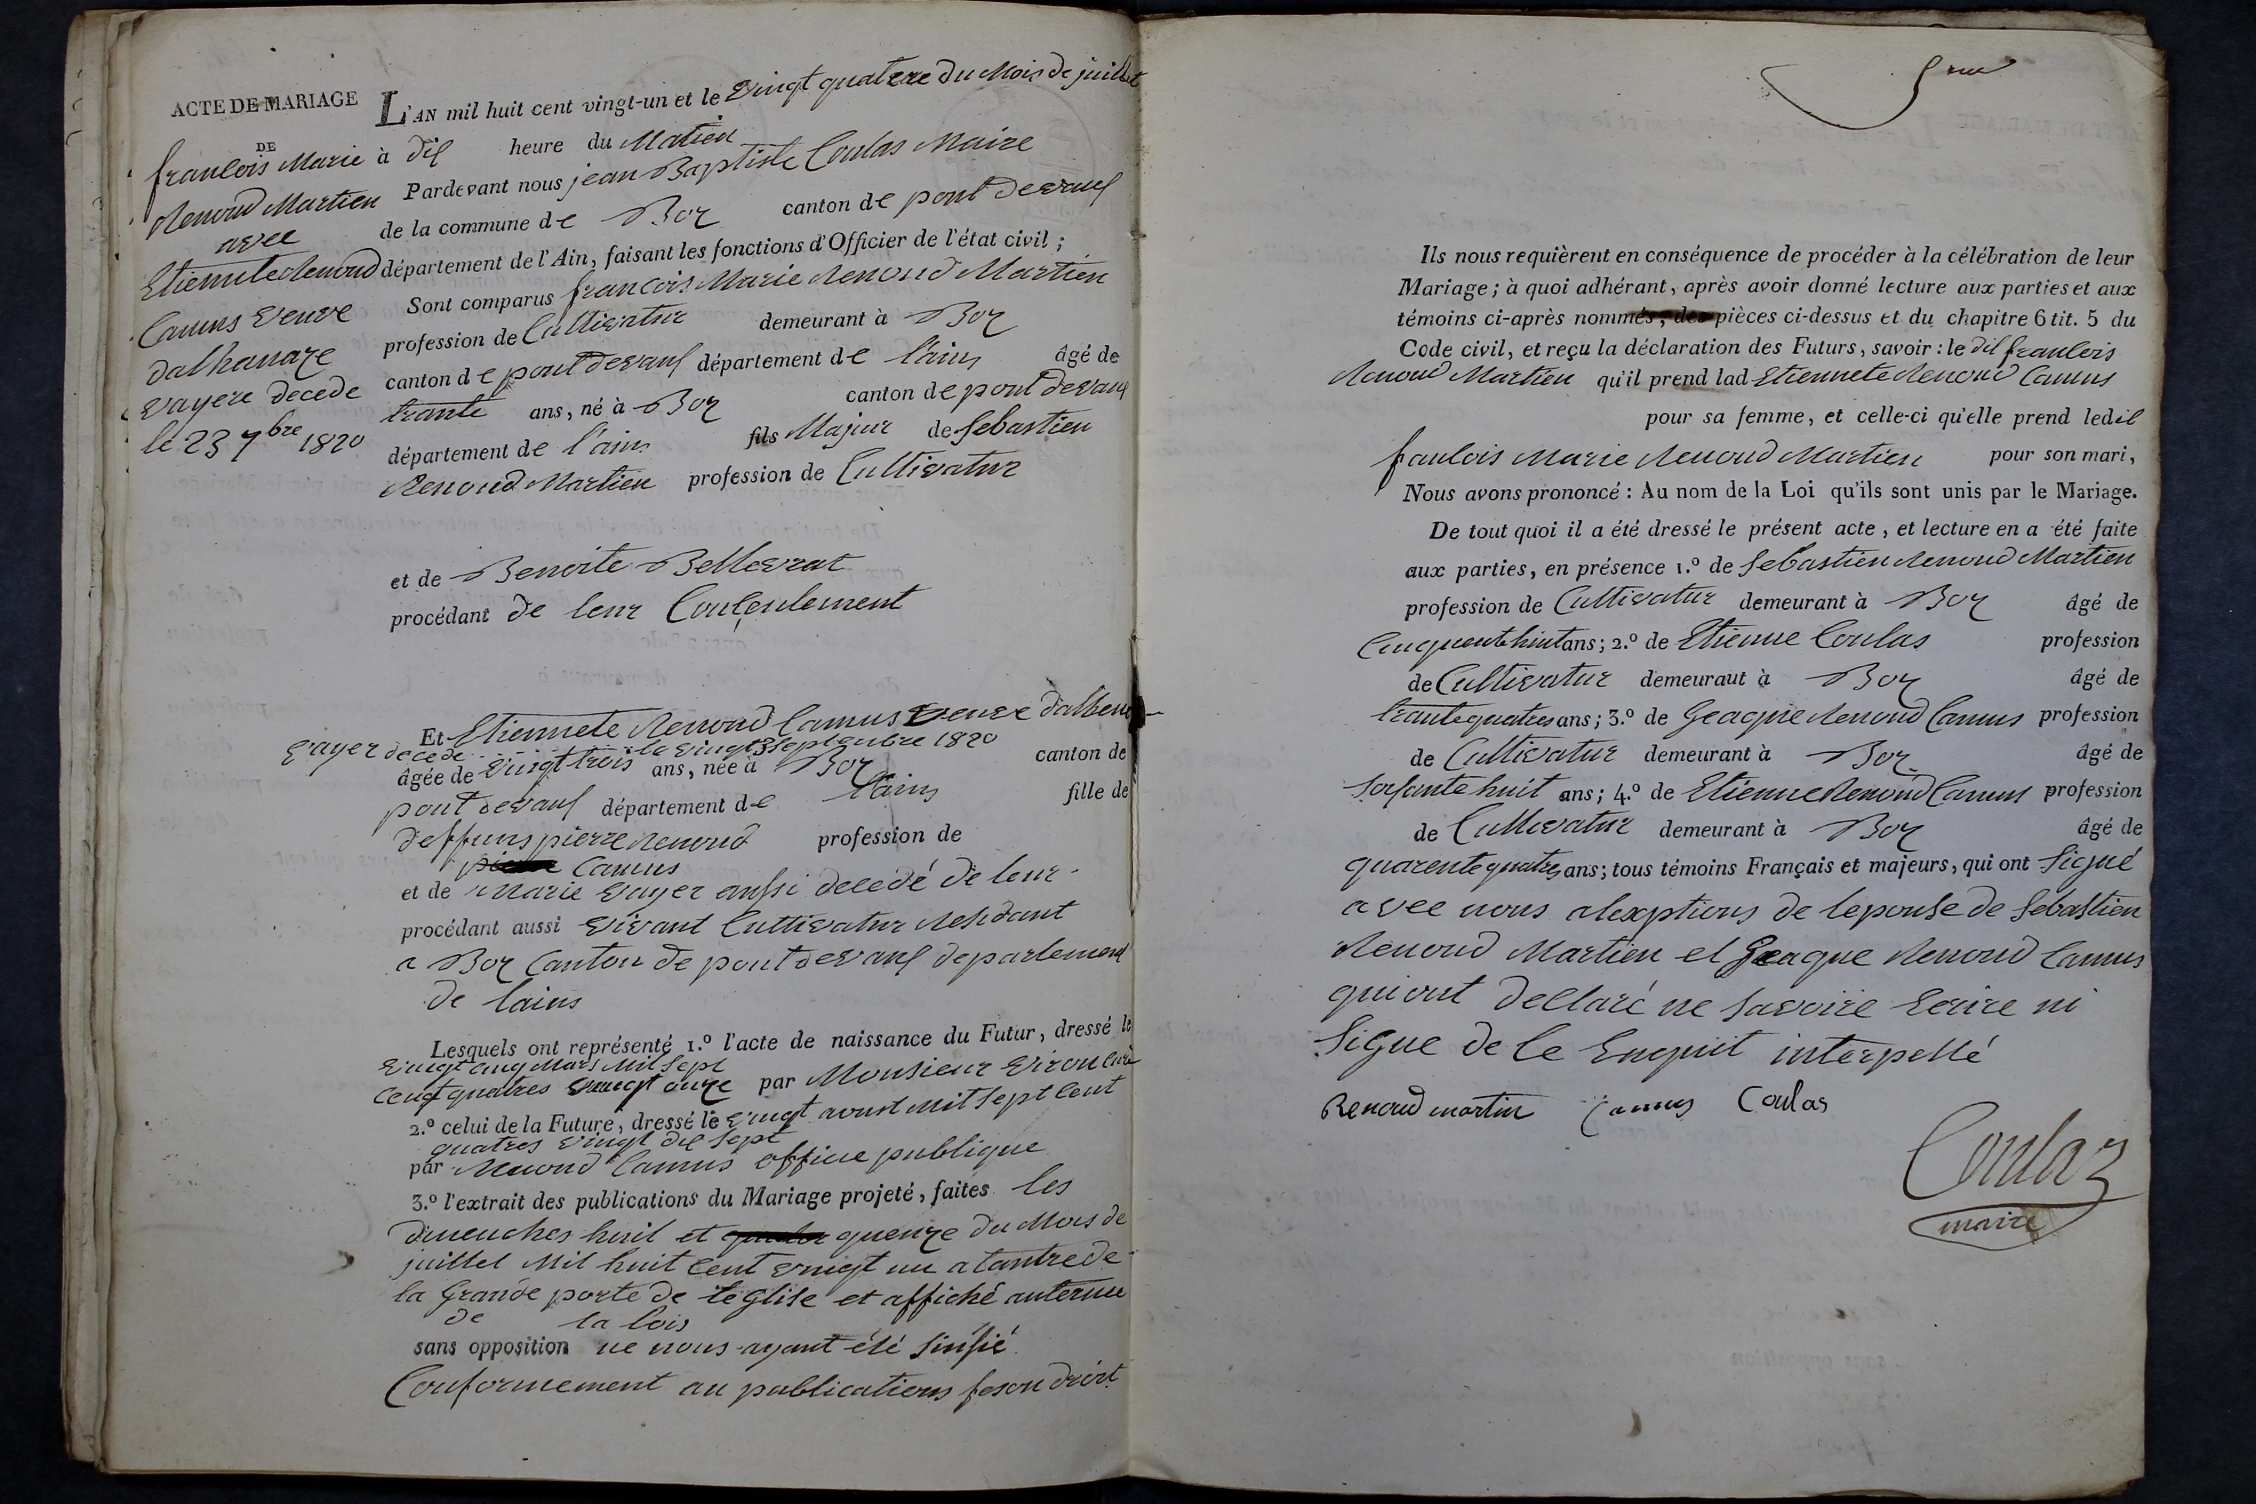 ACTE DE MARIAGE
DE
francois Marie
Renoud Martien
avec
Etiennete Renoud
Camus veuve
dalhanaze
vayere decede
le 23 7bre 1820
L'AN mil huit cent vingt-un et le vingt quatere du Mois de juillet
à dix heure du Matien
Pardevant nous jean Baptiste Coulas Maire
de la commune de Boz canton de pont devaux
département de l'Ain, faisant les fonctions d'Officier de l'état civil ;
Sont comparus francois Marie Renoud Martien
profession de Cultivatur demeurant à Boz
canton de pont devaux département de l'ains âgé de
trante ans, né à Boz canton de pont devaux
département de l'ains fils Majeur de Sebastien
Renoud Martien profession de Cultivatur
et de Benoite Bellevrat
procédant de leur Conçenlement
Et Etiennete Renoud Camus veuve dalbene
vayer decede le vingt 3 septenbre 1820
âgée de vingt trois ans, née à Boz canton de
pont devaux département de l'ains fille de
deffuns pierre Renoud profession de
Camus
et de Marie vayer aussi decédé de leur
procédant aussi vivant Cultivatur Residant
a Boz Canton de pont devaux departement
de lains
Lesquels ont représenté 1.º l'acte de naissance du Futur, dressé le
vingt cinq Mars Mil Sept
Cent quatres vingt onze par Monsieur viron Curé
2.º celui de la Future, dressé le vingt aoust Mil Sept Cent
quatres vingt dix sept
par Renoud Camus officie publique
3.º l'extrait des publications du Mariage projeté, faites les
dimenches huit et quenze du Mois de
juillet Mil huit Cent vingt un a lantre de
la Grande porte de leglise et affiché auterme
de la lois
sans opposition ne nous ayant été sinfié
Conformement au publications feson droit
5me
Ils nous requièrent en conséquence de procéder à la célébration de leur
Mariage ; à quoi adhérant, après avoir donné lecture aux parties et aux
témoins ci-après nommés, des pièces ci-dessus et du chapitre 6 tit. 5 du
Code civil, et reçu la déclaration des Futurs, savoir : le dit francois
Renoud Martien qu'il prend lad Etiennete Renoud Camus
pour sa femme, et celle-ci qu'elle prend ledit
francois Marie Renoud Martien pour son mari,
Nous avons prononcé : Au nom de la Loi qu'ils sont unis par le Mariage.
De tout quoi il a été dressé le présent acte, et lecture en a été faite
aux parties, en présence 1.º de Sebastien Renoud Martien
profession de Cultivatur demeurant à Boz âgé de
Cinquentehuit ans ; 2.º de Etienne Coulas profession
de Cultivatur demeuraut à Boz âgé de
trantequatres ans ; 3.º de Geaque Renoud Camus profession
de Cultivatur demeurant à Boz âgé de
soisante huit ans ; 4.º de Etienne Renoud Camus profession
de Cultivatur demeurant à Boz âgé de
quarente quatres ans ; tous témoins Français et majeurs, qui ont Signé
avee nous alexptions de lepouse de Sebastien
Renoud Martien et Geaque Renoud Camus
qui ont dellaré ne savoire Ecrire ni
Signe de le Enquit interpellé
Renoud martin Camus Coulas
Coulaz
maire